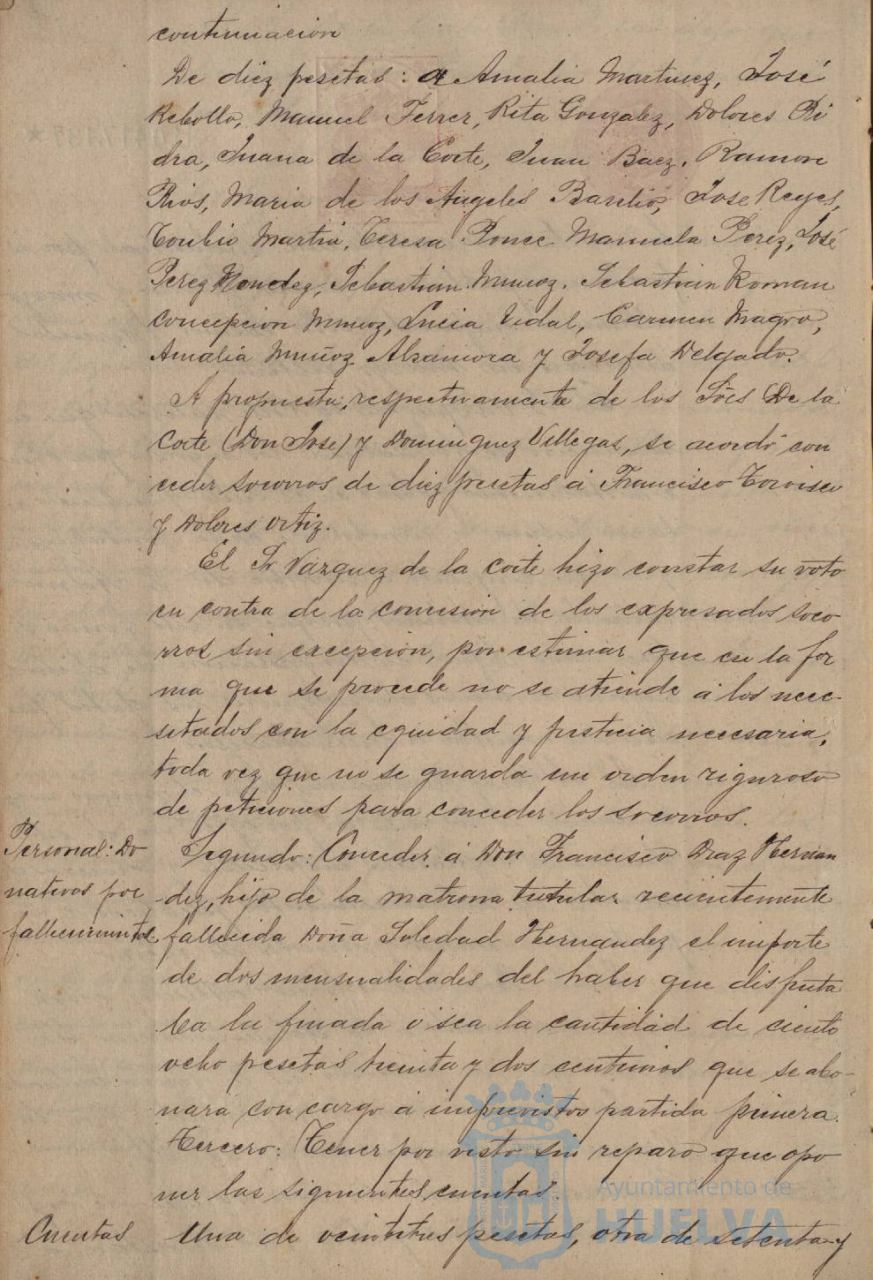 continuación
De diez pesetas: a Amalia Martinez, José
Rebollo, Manuel Ferrer, Rita Gonzalez, Dolores Pi
dra, Juana de la Corte, Juan Baez, Ramon
Rios, Maria de los Angeles Barelio, Jose Reyes,
Toribio Martin, Teresa Ponce Manuela Perez, José
Perez Mendez, Sebastian Muñoz, Sebastian Roman
Concepcion Muñoz, Lucia Vidal, Carmen Magro,
Amalia Muñoz Alzamora y Josefa Delgado.
A propuesta, respectivamente de los Sres De la
Corte (Don Jose) y Dominguez Villegas, se acordó con
ceder socorros de diez pesetas á Francisco
y Dolores Ortiz.
El Sr Vazquez de la Corte hizo constar su voto
en contra de la concesión de los expresados soco
rros sin excepción, por estimar que en la for
ma que se procede no se atiende á los nece-
sitados con la equidad y justicia necesaria,
toda vez que no se guarda un orden riguroso
de peticiones para conceder los socorros.
Personal: Do
nativos por
fallecimiento
Segundo: Conceder á Don Francisco Diaz Hernan
dez, hijo de la matrona titular recientemente
fallecida Doña Soledad Hernandez el importe
de dos mensualidades del haber que disfruta
ba la finada ó sea la cantidad de ciento
ocho pesetas treinta y dos centimos que se abo-
nará con cargo á imprevistos partida primera.
Tercero: Tener por visto sin reparo que opo
ner las siguientes cuentas.
Cuentas
Una de veintitres pesetas, otra de setenta y
Ayuntamiento de
HUELVA